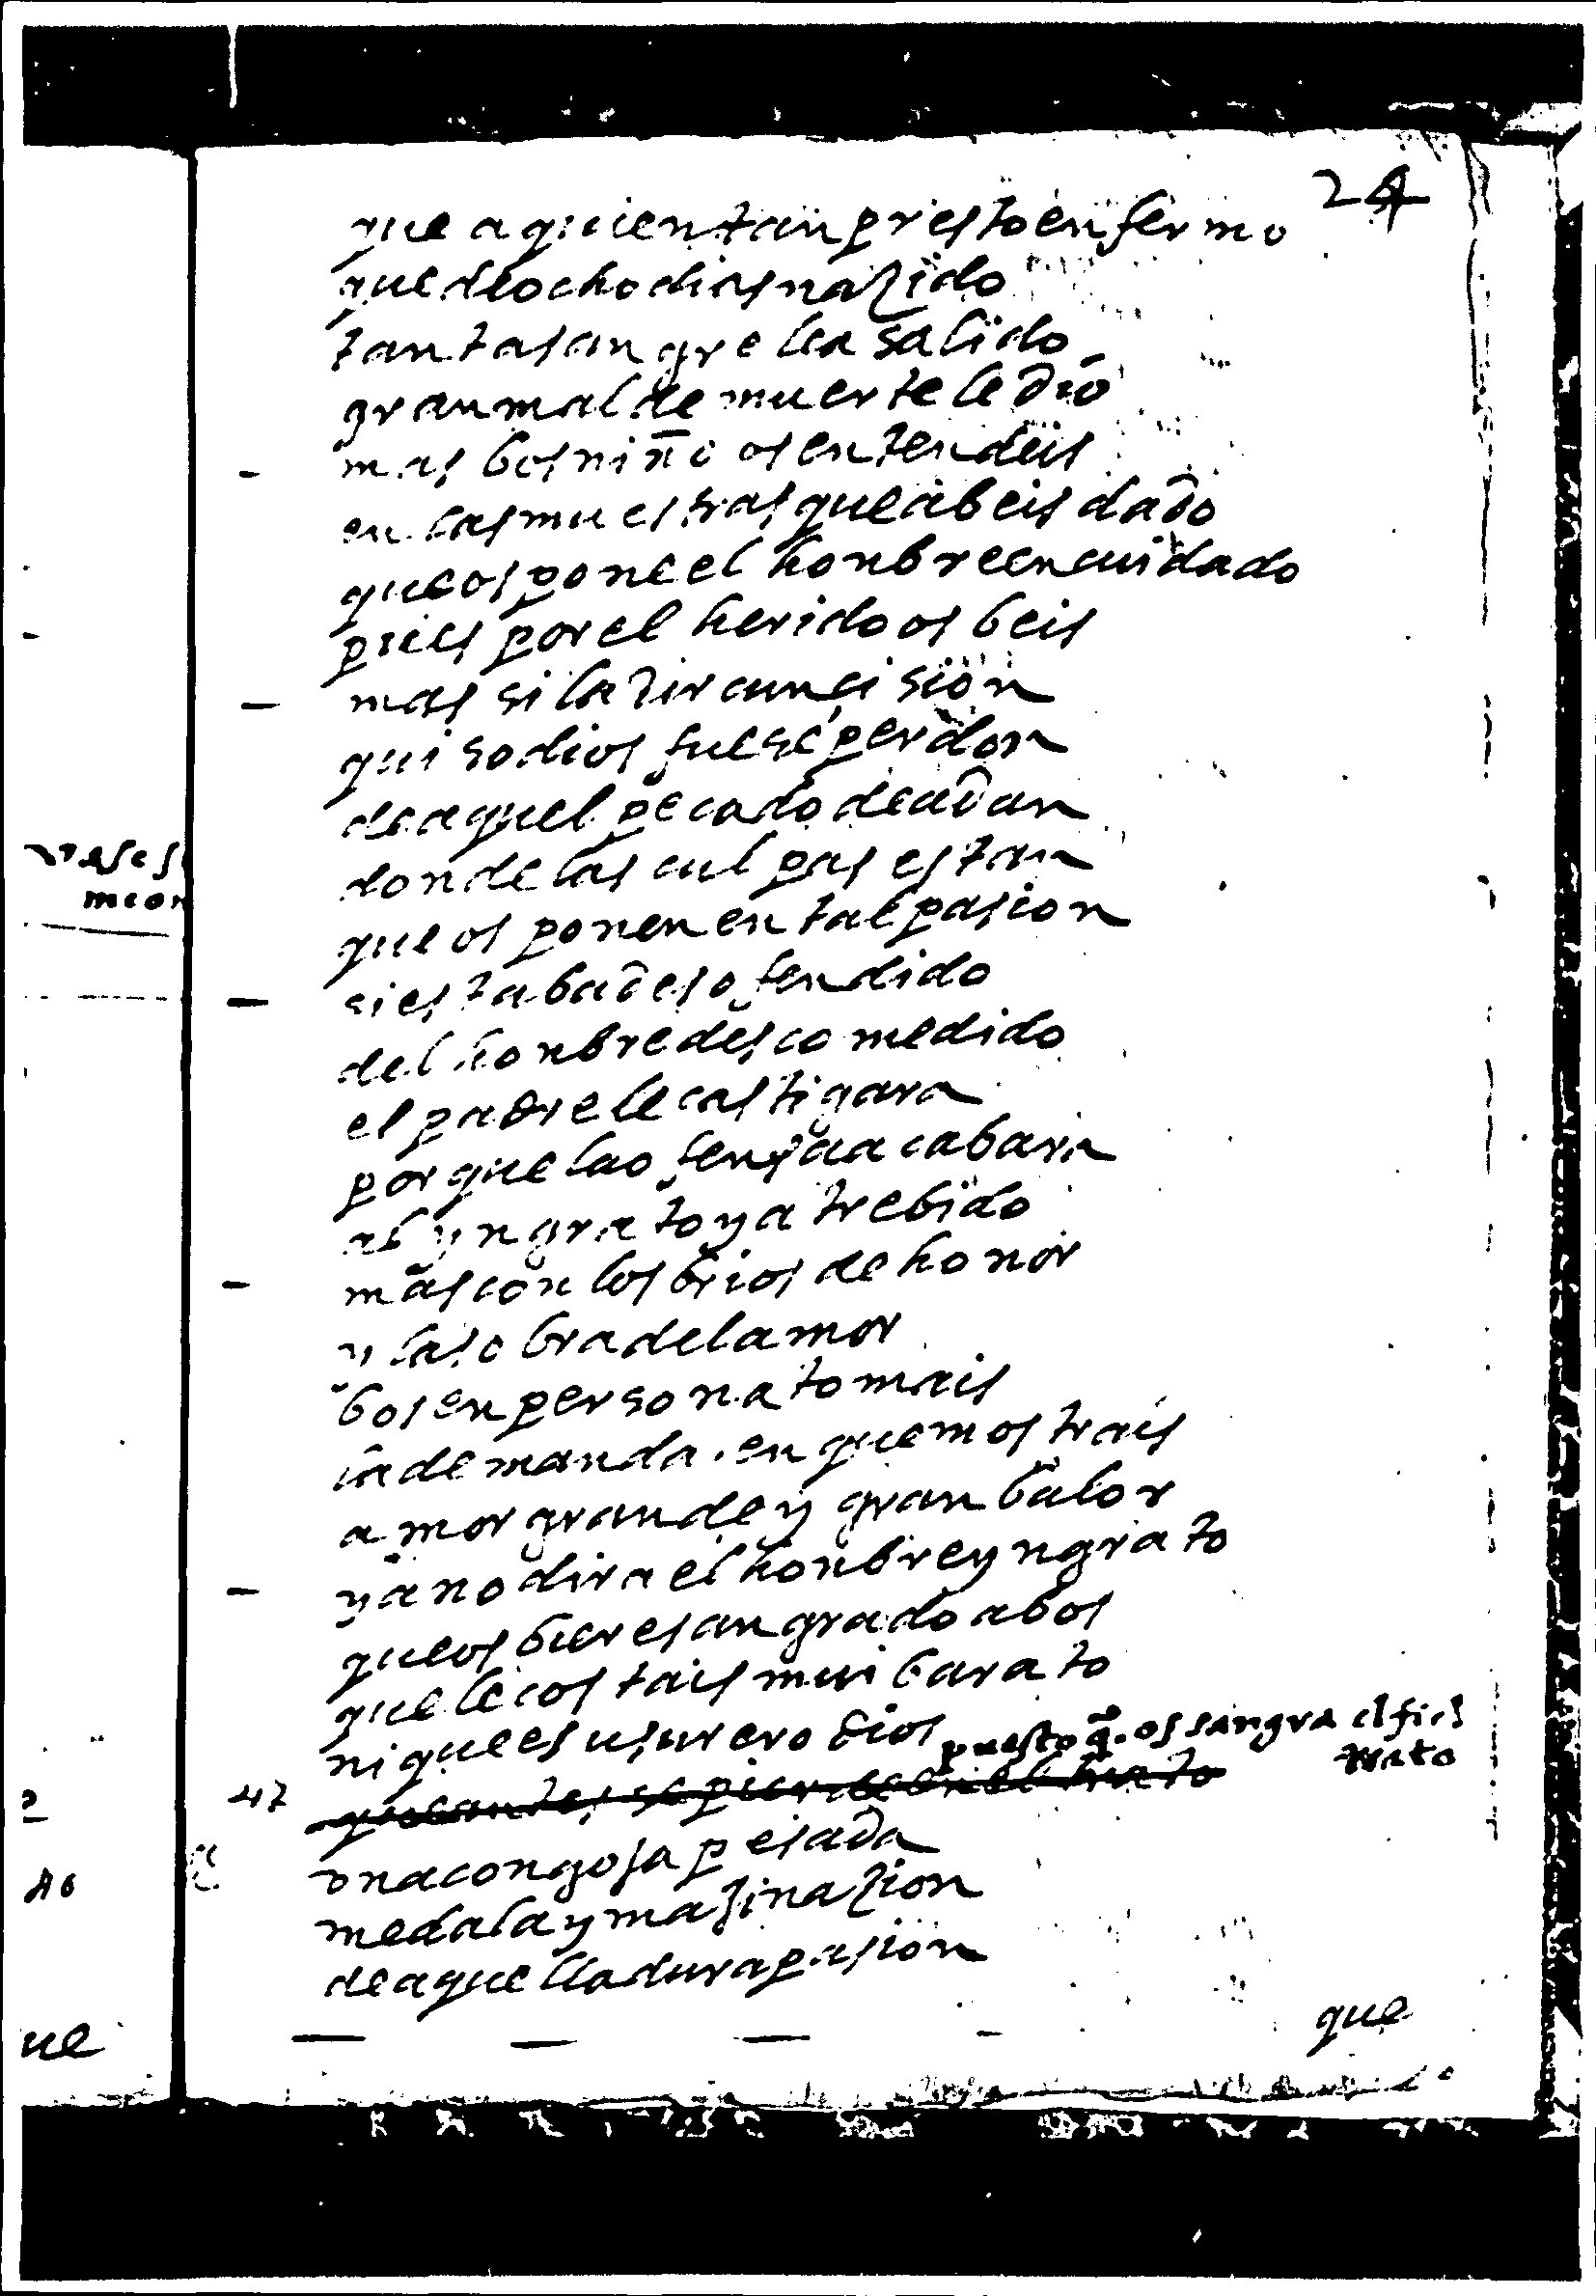 24
que a quien tan presto enfermo
que de ocho dias nazido
tanta sangre lea salido
gran mal de muerte le dio
mas bos niño os entendeis
en las muestras que abeis dado
que os pone el honbre en cuidado
pues por el herido os beis
mas si la zircuncision
quiso dios fuese perdon
de aquel pecado de adan
donde las culpas estan
que os ponen en tal pasion
si estabades ofendido
del honbre descomedido
el padre le castigara
porque la ofensa acabara
al yngrato y atrebido
mas con los brios de honor
y la sobra del amor
bos en persona tomais
la demanda en que mostrais
amor grande y gran balor
ya no dira el honbre yngrato
que os biere sangrado a bos
que le costais mui barato
ni que es usurero dios
puesto q. os sangra el fiel
trato
que antes se pierde en el trato
47
una congoja pesada
me da la ymazinazion
de aquella dura pasion
que